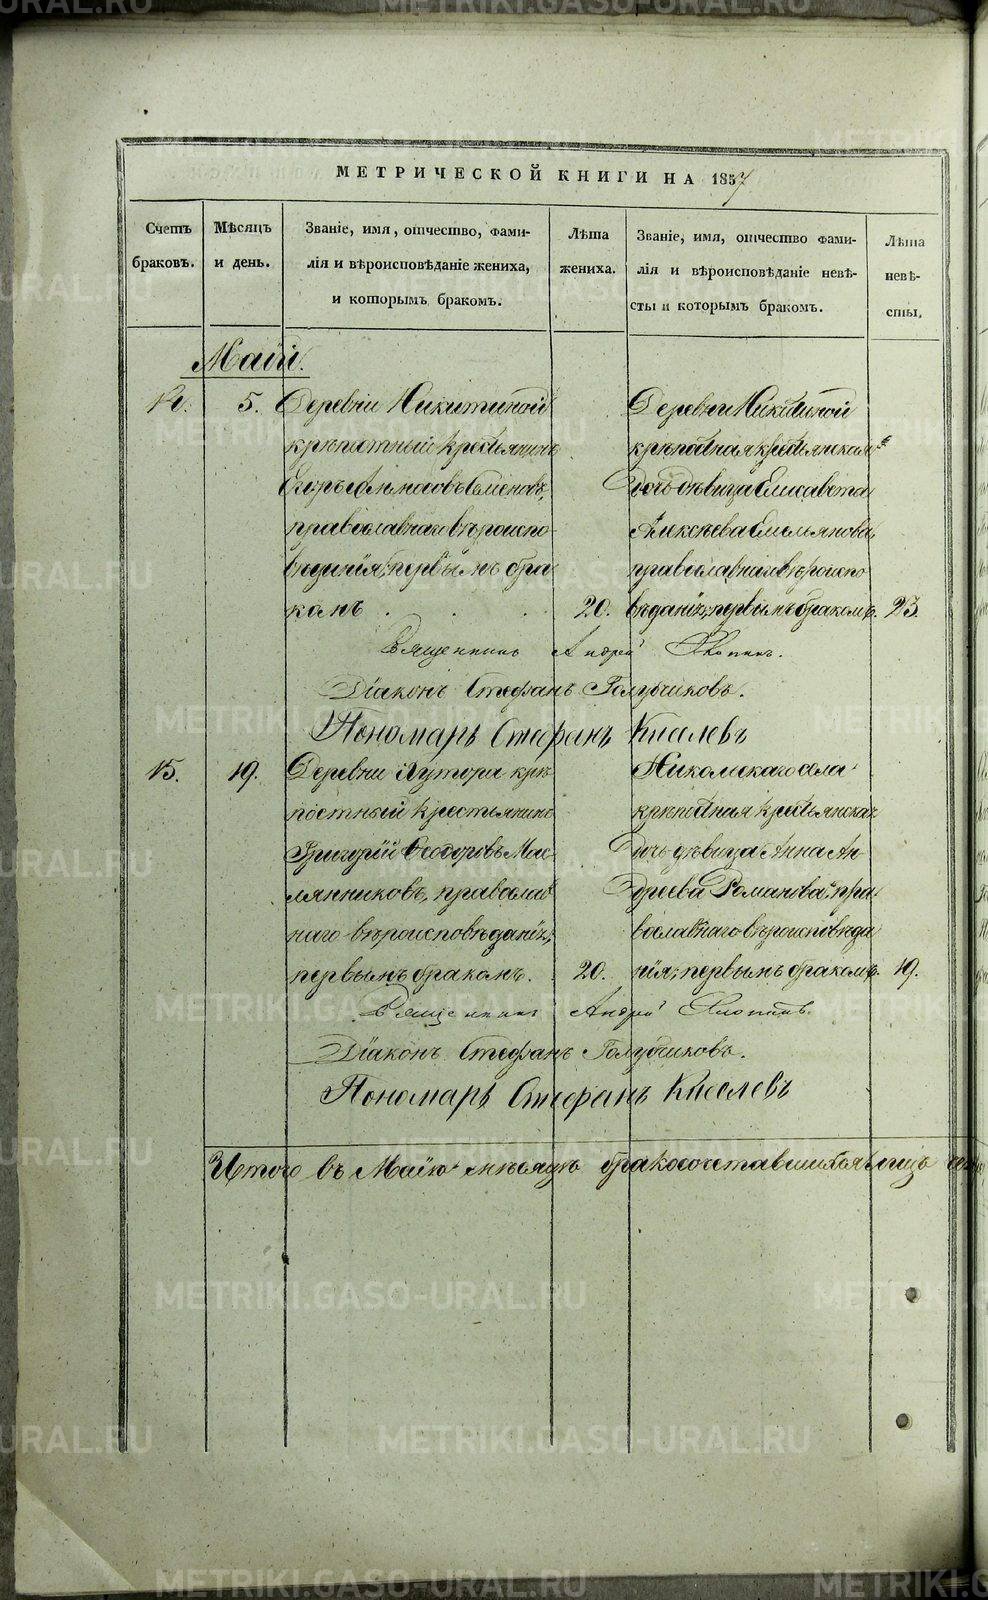 МЕТРИЧЕСКОЙ КНИГИ НА 1857
Счетъ браковъ.
Мѣсяцъ и день.
Званіе, имя, отчество, фами-
лія и вѣроисповѣданіе жениха,
и которымъ бракомъ.
Лѣта жениха.
Званіе, имя, отчество фами-
лія и вѣроисповѣданіе невѣ-
сты и которымъ бракомъ.
Лѣта невѣ-
сты.
Маій.
14. 5.
Деревни Никитиной
крѣпостный крестьянинъ
Егоръ Семеновъ,
православнаго вѣроиспо-
вѣданія, первымъ бра-
комъ 20.
Деревни Никитиной
крѣпостная крестьянская
дочь дѣвица Елисавета
Алексѣева Емельянова,
православнаго вѣроиспо
вѣданія, первымъ бракомъ. 23.
Священникъ Андрей
Діаконъ Стефанъ Голубчиковъ.
Пономарь Стефанъ Киселевъ
15. 19.
Деревни Хутора крѣ-
постный крестьянинъ
Григорій Ѳеодоровъ Мас-
лянниковъ, православ
наго вѣроисповѣданія,
первымъ бракомъ. 20.
Никольскаго села
крѣпостная крестьянская
дочь дѣвица Анна Ан-
дреева Романова, пра-
вославнаго вѣроисповѣда
нія, первымъ бракомъ. 19.
Священникъ Андрей
Діаконъ Стефанъ Голубчиковъ.
Пономарь Стефанъ Киселевъ
Итого въ Маію мѣсяцѣ бракосочетавшихся лицъ
METRIKI.GASO-URAL.RU